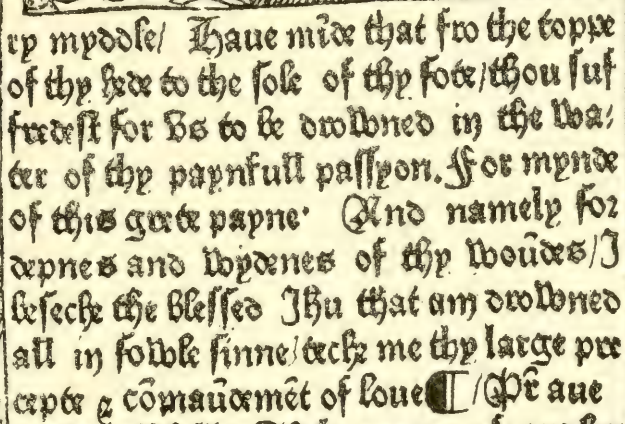 ry myddle/ Haue mīde that fro the toppe
of thy hede to the sole of thy fote/thou suf
fredest for vs to be drowned in the wa⸗
ter of thy paynfull passyon. For mynde
of this grete payne· And namely for
depnes and wydenes of thy woūdes/J
beseche the blessed Jhu that am drowned
all in fowle sinne/teche me thy large pre
cepte & cōmaūdemēt of loue¶/Pr̄ aue